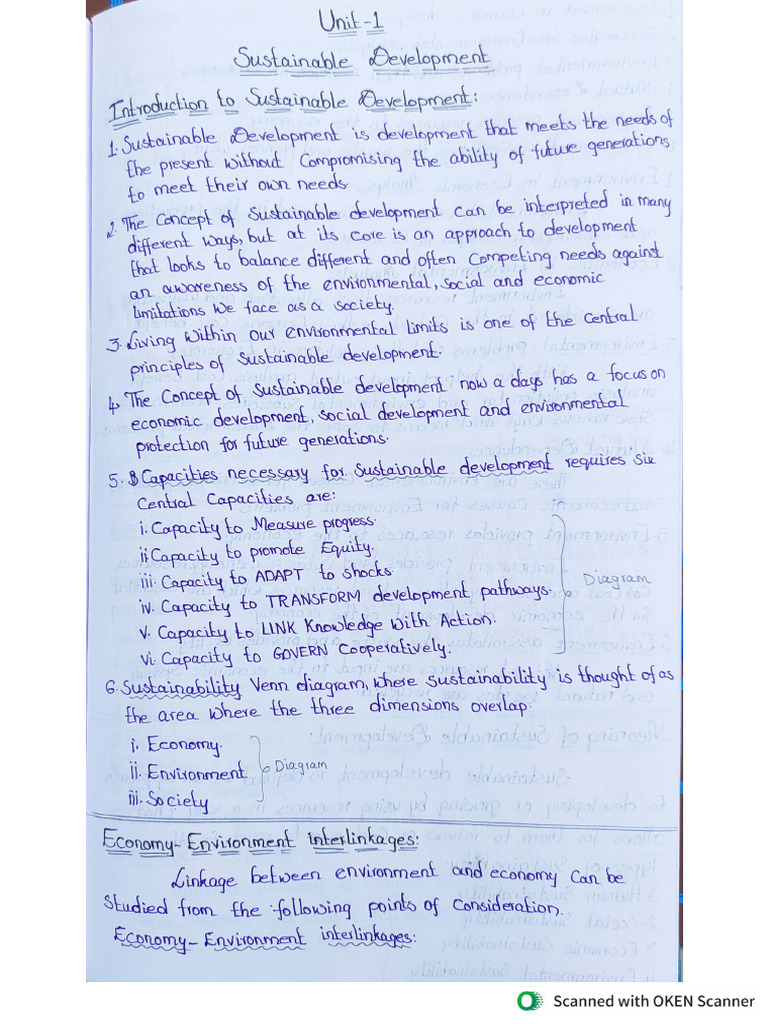 Unit-1
Sustainable Development
Introduction to Sustainable Development:
1. Sustainable Development is development that meets the needs of
the present without Compromising the ability of future generations
to meet their own needs.
2. The Concept of Sustainable development can be interpreted in many
different ways, but at its core is an approach to development
that looks to balance different and often Competing needs against
an awareness of the environmental, social and economic
limitations we face as a society.
3. Living within our environmental limits is one of the Central
principles of Sustainable development.
4 The Concept of Sustainable development now a days has a focus on
economic development, social development and environmental
protection for future generations.
5. Capacities necessary for Sustainable development requires six
Central Capacities are:
i. Capacity to Measure progress.
ii. Capacity to promote Equity.
iii. Capacity to ADAPT to shocks.
iv. Capacity to TRANSFORM development pathways.
Diagram
v. Capacity to LINK Knowledge with Action.
vi. Capacity to GOVERN Cooperatively.
6. Sustainability Venn diagram, where sustainability is thought of as
the area where the three dimensions overlap.
i. Economy.
ii. Environment Diagram
iii. Society
Economy-Environment interlinkages:
Linkage between environment and economy can be
Studied from the following points of Consideration.
Economy-Environment interlinkages:
Scanned with OKEN Scanner